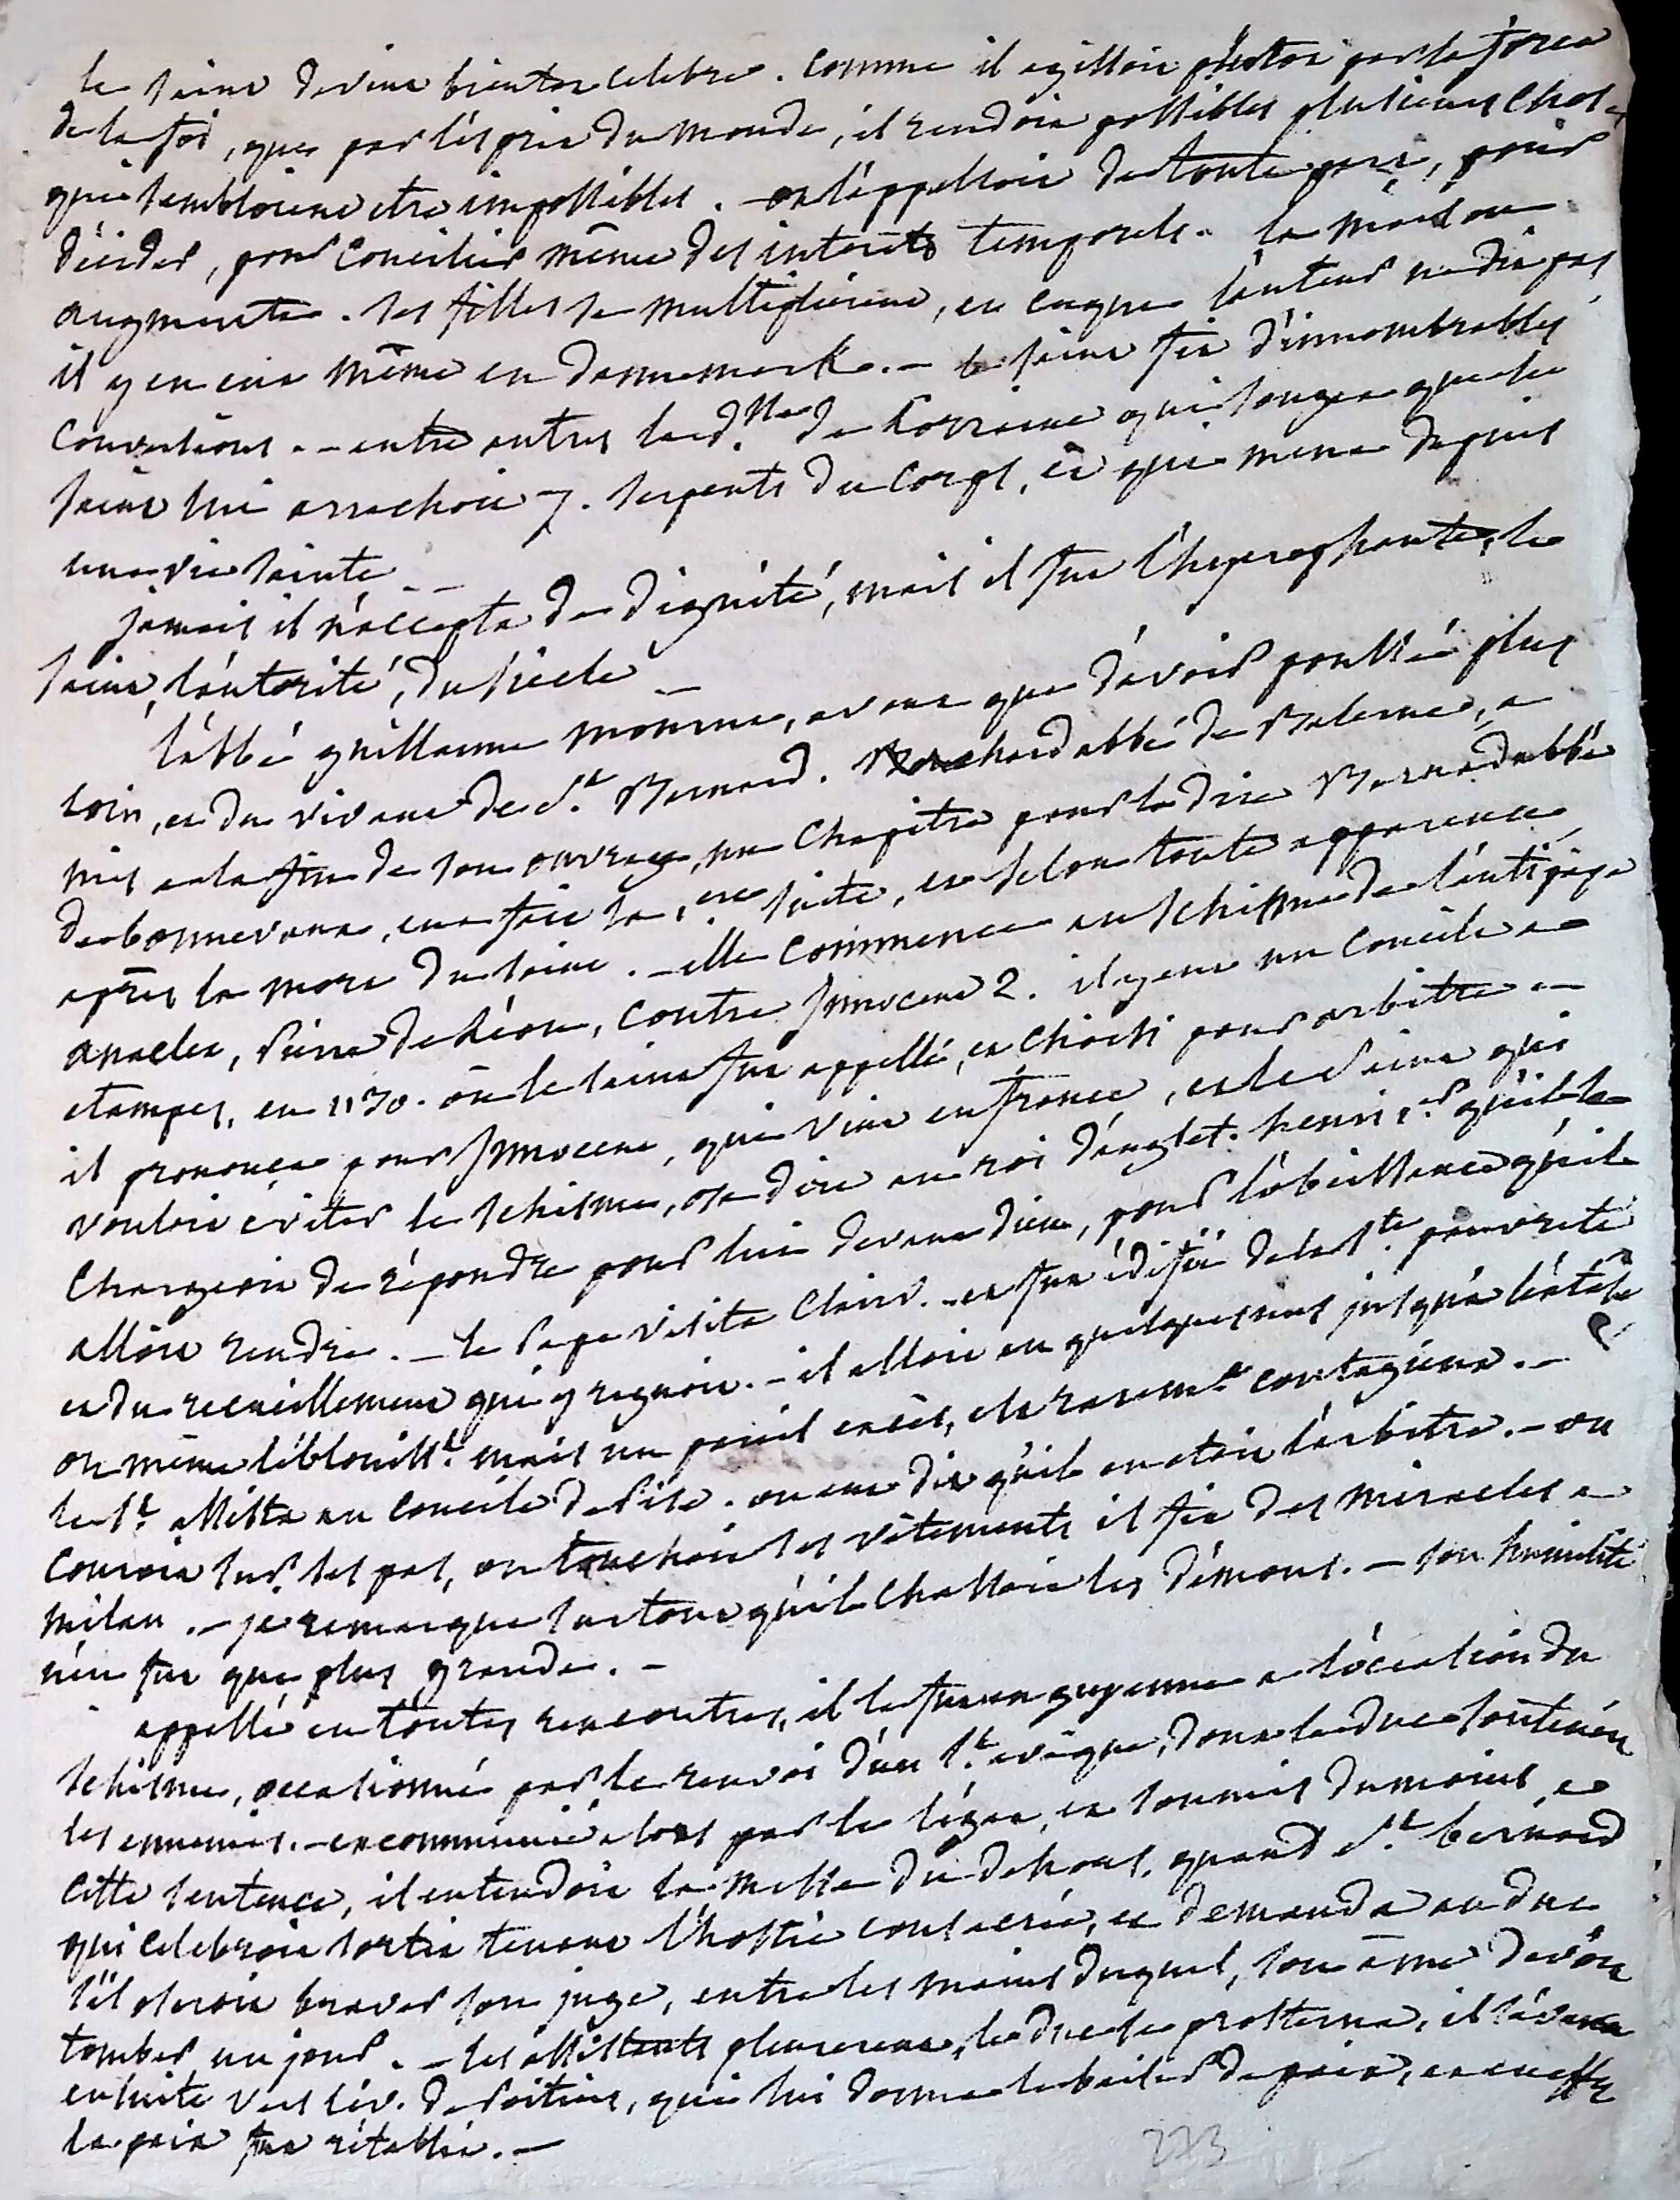 le saint devint bientot celebre. comme il agissoit plutot par la force
de la foi, que par l'esprit du monde, il rendoit possibles plusieurs choses
qui sembloient etre impossibles. - on l'appelloit de toute part, pour
d'aider, pour concilier même des interets temporels. la maison
augmenta. ses filles se multiplierent, et ce que l'auteur ne dit pas
il y en eut même en dannemark. - le saint fit d'innombrables
conversions. - entre autres la d.sse de Lorraine qui songea que le
saint lui arrachoit 7. serpents du corps, et qui mena depuis
une vie sainte -
jamais il n'accepta de dignité, mais il fut l'hyerophante, le
saint, l'autorité, du siecle -
l'abbé guillaume mourut, avant que d'avoir poussé plus
loin, et du vivant de St. Bernard. Bouchard abbé de Balerne, a
mis a la fin de son ouvrage, un chapitre pour le dire Bernard abbé
de bonnevaux, en a fait la 1.ere suite, et selon toute apparence,
après la mort du saint. - elle commence au schisme de l'antipape
anaclet, Pierre de Léon, contre Innocent 2. il y eut un concile a
etampes, en 1130. où le saint fut appellé, et choisi pour arbitre -
il prononça pour Innocent, qui vint en france, et le saint qui
vouloit éviter le schisme, osa dire au roi d'anglet. henri 1.er qu'il se
chargeoit de répondre pour lui devant dieu, pour l'obeissance qu'il
alloit rendre. - le Pape visita Clairv. - et fut édifié de la Ste. pauvreté
et du recueillement qui y regnoit. - il alloit en quelques uns jusqu'a l'extase
ou même l'éblouisst. mais un pareil excès, est raremt. contagieux. -
le St. assista au concile de Pise. on eut dit qu'il en etoit l'arbitre. - on
couroit sur ses pas, on touchoit ses vêtements il fit des miracles a
milan. - je remarque surtout qu'il chassoit les démons. - son humilité
n'en fut que plus grande. -
appellé en toutes rencontres, il le fut en guyenne a l'occasion du
schisme, occasionné par le renvoi d'un St. evêque, dont le duc soutenoit
les ennemis. - excommunié alors par le légat, et soumis du moins, a
cette sentence, il entendoit la messe du dehors, quand St. bernard
qui celebroit sortit tenant l'hostie consacrée, et demanda au duc
s'il oseroit braver son juge, entre les mains duquel, son âme devoit
tomber un jour. - les assistants pleurerent, le duc se prosterna, il s'avança
ensuite vers l'év. de Poitiers, qui lui donna le baiser de paix, et en effet
la paix fut rétablie. -
223